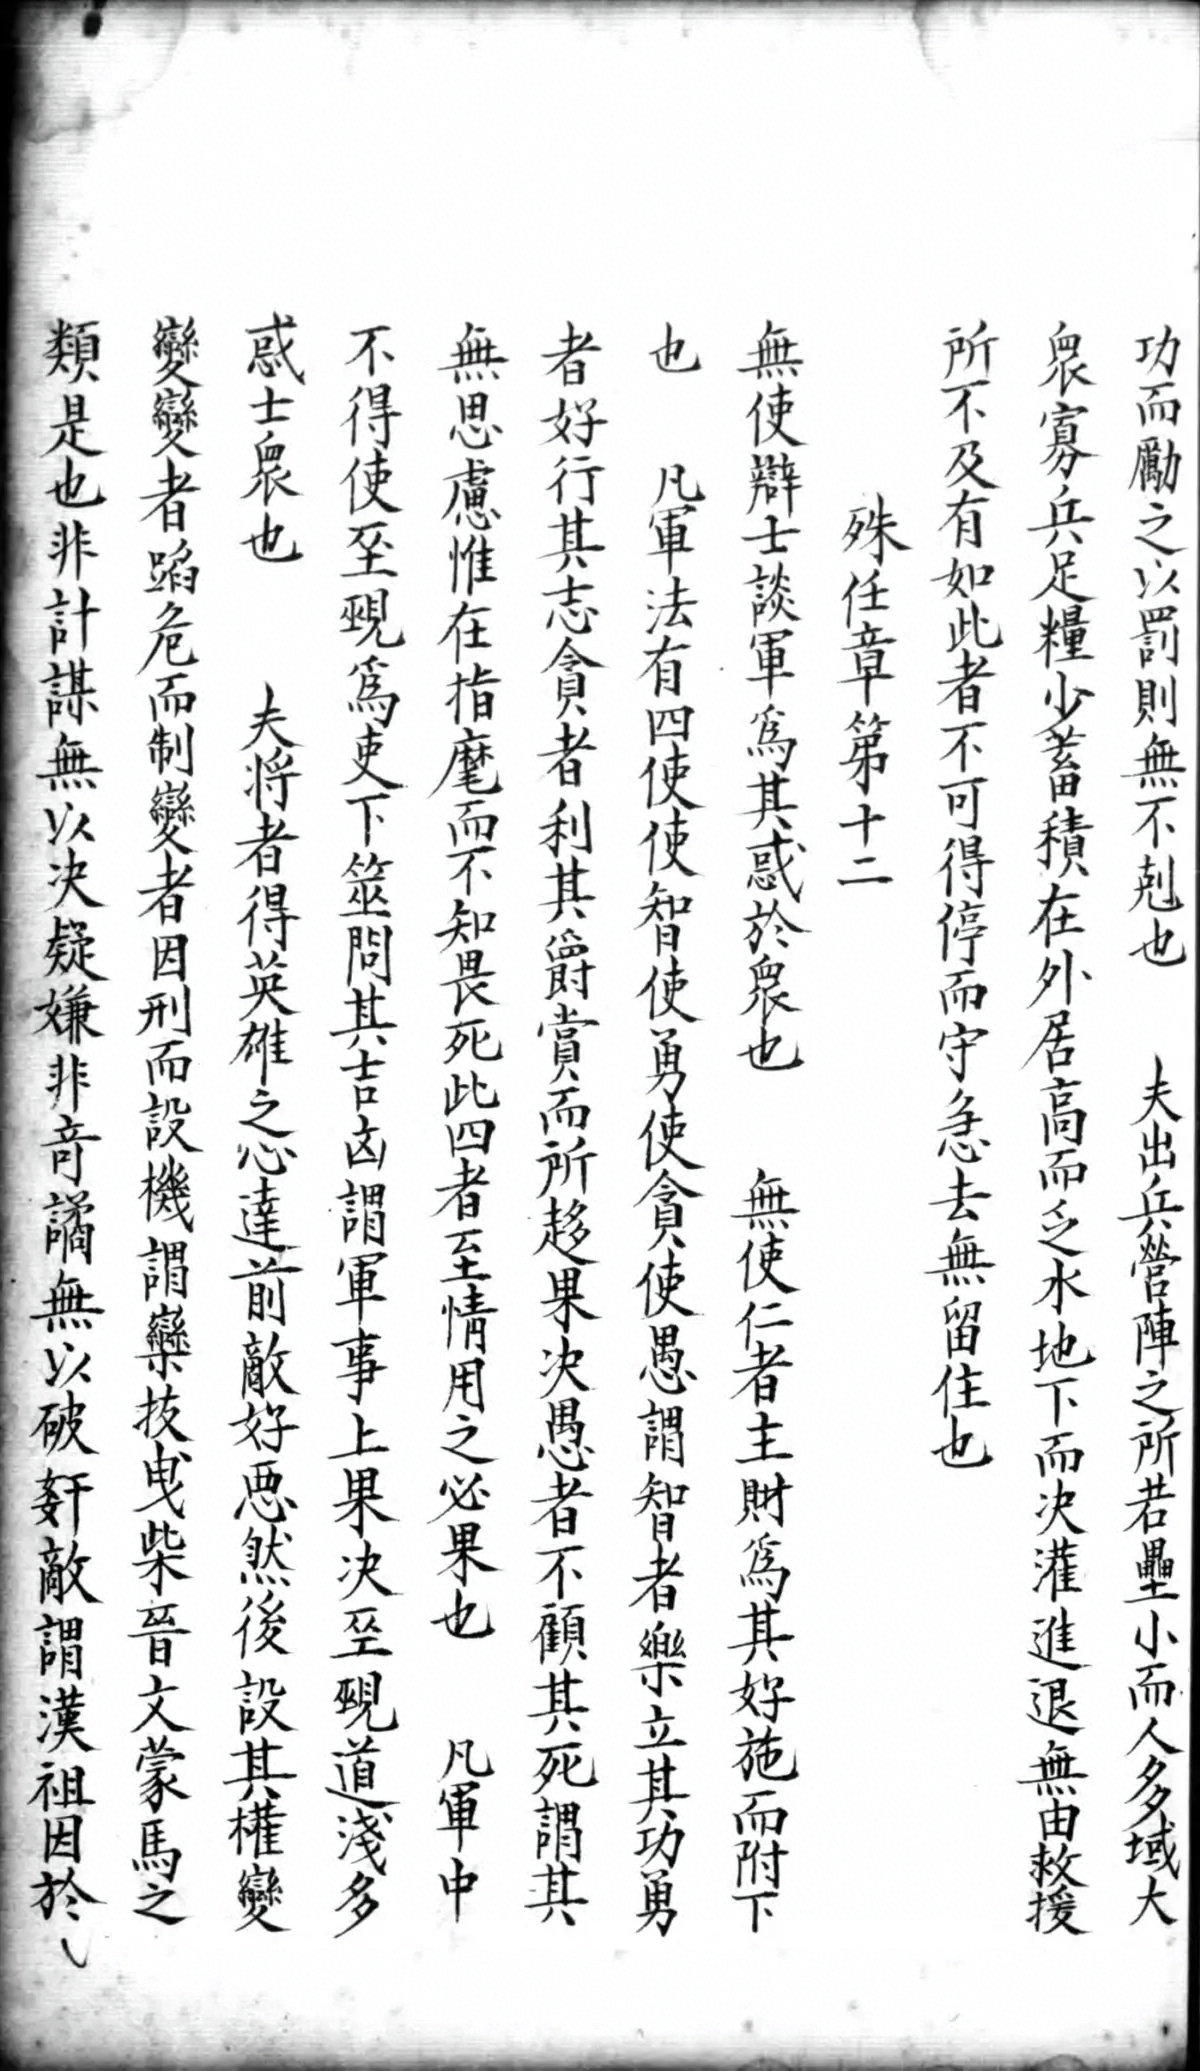 功而勵之以罰則無不剋也　夫出兵營陣之所若壘小而人多域大
衆寡兵足糧少蓄積在外居高而乏水地下而决灌進退無由救援
所不及有如此者不可得停而守急去無留住也
殊任章第十二
無使辯士談軍爲其惑於衆也　無使仁者主財爲其好施而附下
也　凡軍法有四使使智使勇使貪使愚謂智者樂立其功勇
者好行其志貪者利其爵賞而所趍果决愚者不顧其死謂其
無思慮惟在指麾而不知畏死此四者至情用之必果也　凡軍中
不得使巫覡爲吏下筮問其吉凶謂軍事上果决巫覡道淺多
惑士衆也　夫将者得英雄之心達前敵好惡然後設其權變
變變者蹈危而制變者因刑而設機謂欒技曳柴晉文蒙馬之
類是也非計謀無以决疑嫌非奇譎無以破奸敵謂漢祖因於